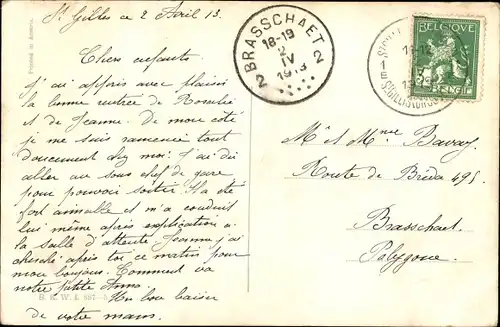 St Gilles ce 2 Avril 13.
Chers enfants
J'ai appris avec plaisir
la bonne rentrée de Rosalie
et de Jeanne. De mon côté
je me suis ramenée tout
doucement chez moi. J'ai dû
aller au sous chef de gare
pour pouvoir sortir. Il a été
fort aimable et m'a conduit
lui même après explication à
la salle d'attente Jeanne j'ai
cherché après toi ce matin pour
mon bonjour. Comment va
notre petite Anna
Un bon baiser
de votre mam.
Printed in
H. & W. I. 887-
BRASSCHAET 2
18-19
2
IV
1913
2
BELGIQUE
BELGIË
Mr & Mme Bavay
Route de Bréda 495
Brasschaet
Polygone.